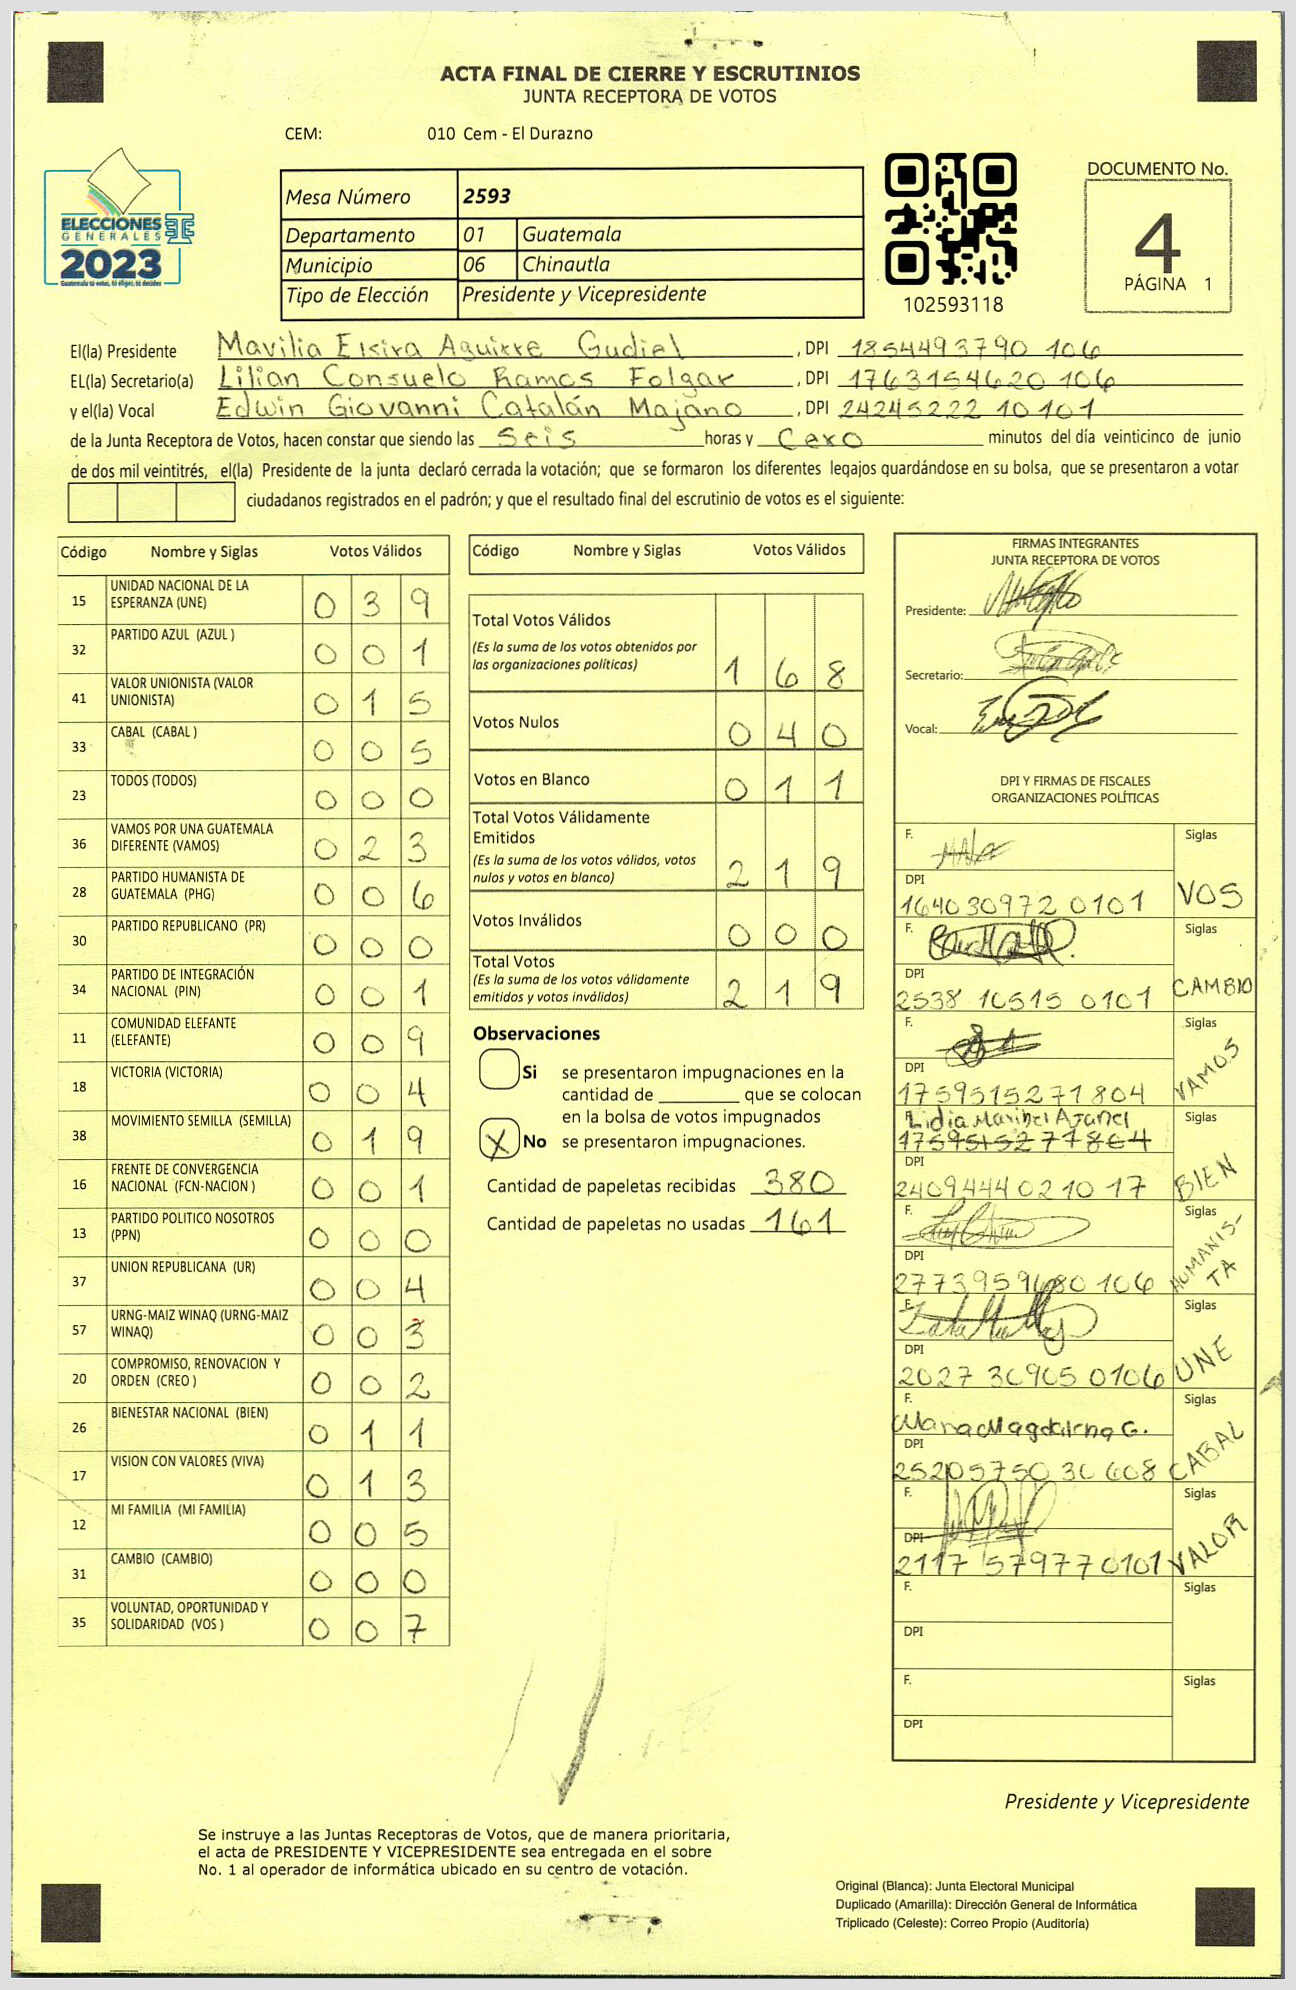 ACTA FINAL DE CIERRE Y ESCRUTINIOS
JUNTA RECEPTORA DE VOTOS
CEM: 010 Cem - El Durazno
ELECCIONES
GENERALES
2023
Guatemala tú votas, tú eliges, tú decides
Mesa Número 2593
Departamento 01 Guatemala
Municipio 06 Chinautla
Tipo de Elección Presidente y Vicepresidente
102593118
DOCUMENTO No.
4
PÁGINA 1
El(la) Presidente Mavilia Elvira Aguirre Gudiel , DPI 1854493790 106
EL(la) Secretario(a) Lilian Consuelo Ramos Folgar , DPI 1763154620 106
y el(la) Vocal Edwin Giovanni Catalán Majano , DPI 24245222 10101
de la Junta Receptora de Votos, hacen constar que siendo las Seis horas y Cero minutos del día veinticinco de junio
de dos mil veintitrés, el(la) Presidente de la junta declaró cerrada la votación; que se formaron los diferentes legajos guardándose en su bolsa, que se presentaron a votar
ciudadanos registrados en el padrón; y que el resultado final del escrutinio de votos es el siguiente:
Código Nombre y Siglas Votos Válidos
15 UNIDAD NACIONAL DE LA ESPERANZA (UNE) 0 3 9
32 PARTIDO AZUL (AZUL ) 0 0 1
41 VALOR UNIONISTA (VALOR UNIONISTA) 0 1 5
33 CABAL (CABAL ) 0 0 5
23 TODOS (TODOS) 0 0 0
36 VAMOS POR UNA GUATEMALA DIFERENTE (VAMOS) 0 2 3
28 PARTIDO HUMANISTA DE GUATEMALA (PHG) 0 0 6
30 PARTIDO REPUBLICANO (PR) 0 0 0
34 PARTIDO DE INTEGRACIÓN NACIONAL (PIN) 0 0 1
11 COMUNIDAD ELEFANTE (ELEFANTE) 0 0 9
18 VICTORIA (VICTORIA) 0 0 4
38 MOVIMIENTO SEMILLA (SEMILLA) 0 1 9
16 FRENTE DE CONVERGENCIA NACIONAL (FCN-NACION ) 0 0 1
13 PARTIDO POLITICO NOSOTROS (PPN) 0 0 0
37 UNION REPUBLICANA (UR) 0 0 4
57 URNG-MAIZ WINAQ (URNG-MAIZ WINAQ) 0 0 3
20 COMPROMISO, RENOVACION Y ORDEN (CREO ) 0 0 2
26 BIENESTAR NACIONAL (BIEN) 0 1 1
17 VISION CON VALORES (VIVA) 0 1 3
12 MI FAMILIA (MI FAMILIA) 0 0 5
31 CAMBIO (CAMBIO) 0 0 0
35 VOLUNTAD, OPORTUNIDAD Y SOLIDARIDAD (VOS ) 0 0 7
Código Nombre y Siglas Votos Válidos
Total Votos Válidos
(Es la suma de los votos obtenidos por
las organizaciones políticas) 1 6 8
Votos Nulos 0 4 0
Votos en Blanco 0 1 1
Total Votos Válidamente
Emitidos
(Es la suma de los votos válidos, votos
nulos y votos en blanco) 2 1 9
Votos Inválidos 0 0 0
Total Votos
(Es la suma de los votos válidamente
emitidos y votos inválidos) 2 1 9
Observaciones
Si se presentaron impugnaciones en la
cantidad de ________ que se colocan
en la bolsa de votos impugnados
X No se presentaron impugnaciones.
Cantidad de papeletas recibidas 380
Cantidad de papeletas no usadas 161
FIRMAS INTEGRANTES
JUNTA RECEPTORA DE VOTOS
Presidente:
Secretario:
Vocal:
DPI Y FIRMAS DE FISCALES
ORGANIZACIONES POLÍTICAS
F. Siglas
DPI
164030972 0101 VOS
F. Siglas
DPI
2538 10515 0101 CAMBIO
F. Siglas
DPI
1759515271804 VAMOS
F. Lidia Maribel Ajanel Siglas
1759515271804
DPI
2409444021017 BIEN
F. Siglas
DPI
2773959680106 HUMANIS-
TA
F. Siglas
DPI
2027 30905 0106 UNE
F. Siglas
Maria Magdalena G.
DPI
25205750 30608 CABAL
F. Siglas
DPI
2117 57977 0101 VALOR
F. Siglas
DPI
F. Siglas
DPI
Presidente y Vicepresidente
Se instruye a las Juntas Receptoras de Votos, que de manera prioritaria,
el acta de PRESIDENTE Y VICEPRESIDENTE sea entregada en el sobre
No. 1 al operador de informática ubicado en su centro de votación.
Original (Blanca): Junta Electoral Municipal
Duplicado (Amarilla): Dirección General de Informática
Triplicado (Celeste): Correo Propio (Auditoría)